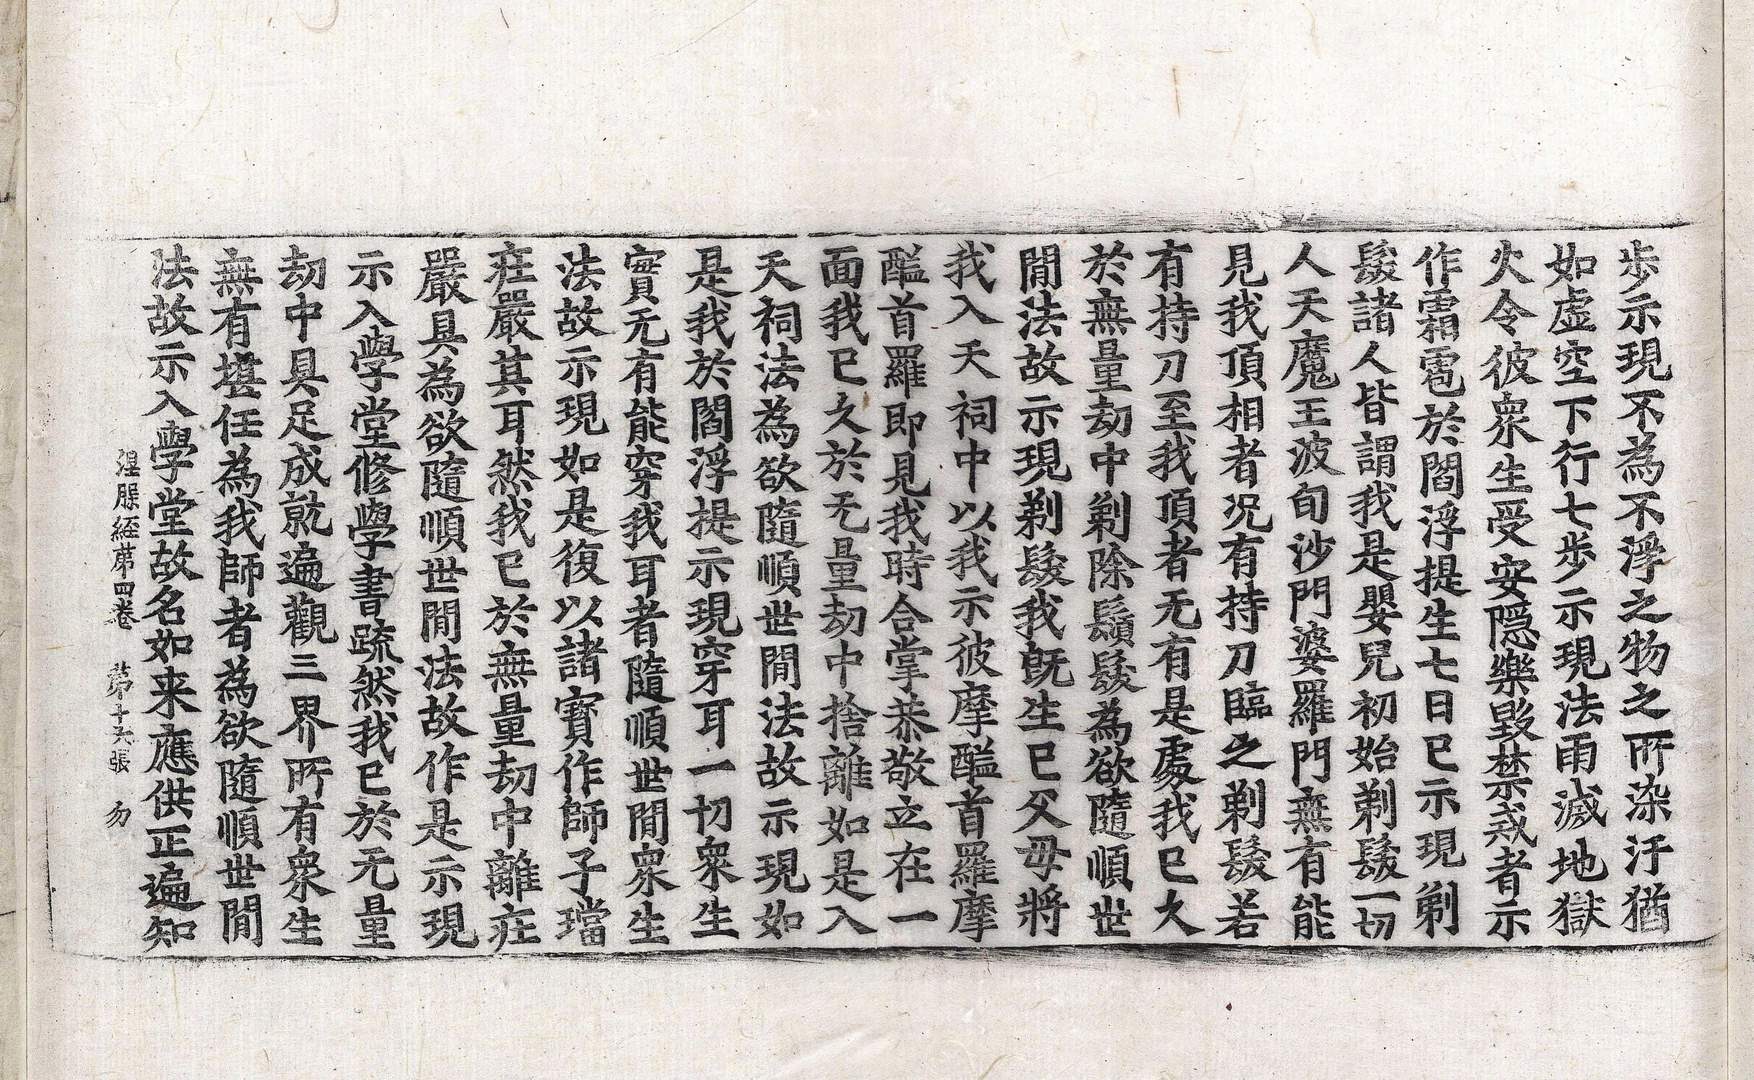 歩示現不為不淨之物之所染汙猶
如虛空下行七歩示現法雨滅地獄
火令彼衆生受安隠樂毀禁戒者示
作霜雹於閻浮提生七日已示現剃
髮諸人皆謂我是嬰兒初始剃髮一切
人天魔王波旬沙門婆羅門無有能
見我頂相者況有持刀臨之剃髮若
有持刀至我頂者无有是處我已久
於無量劫中剃除鬚髮為欲隨順世
閒法故示現剃髮我旣生已父母將
我入天祠中以我示彼摩醯首羅摩
醯首羅即見我時合掌恭敬立在一
面我已久於无量劫中捨離如是入
天祠法為欲隨順世閒法故示現如
是我於閻浮提示現穿耳一切衆生
實无有能穿我耳者隨順世閒衆生
法故示現如是復以諸寶作師子璫
莊嚴其耳然我已於無量劫中離莊
嚴具為欲隨順世閒法故作是示現
示入學堂修學書䟽然我已於无量
劫中具足成就遍觀三界所有衆生
無有堪任為我師者為欲隨順世閒
法故示入學堂故名如来應供正遍知
涅槃經第四卷　第十六張　勿